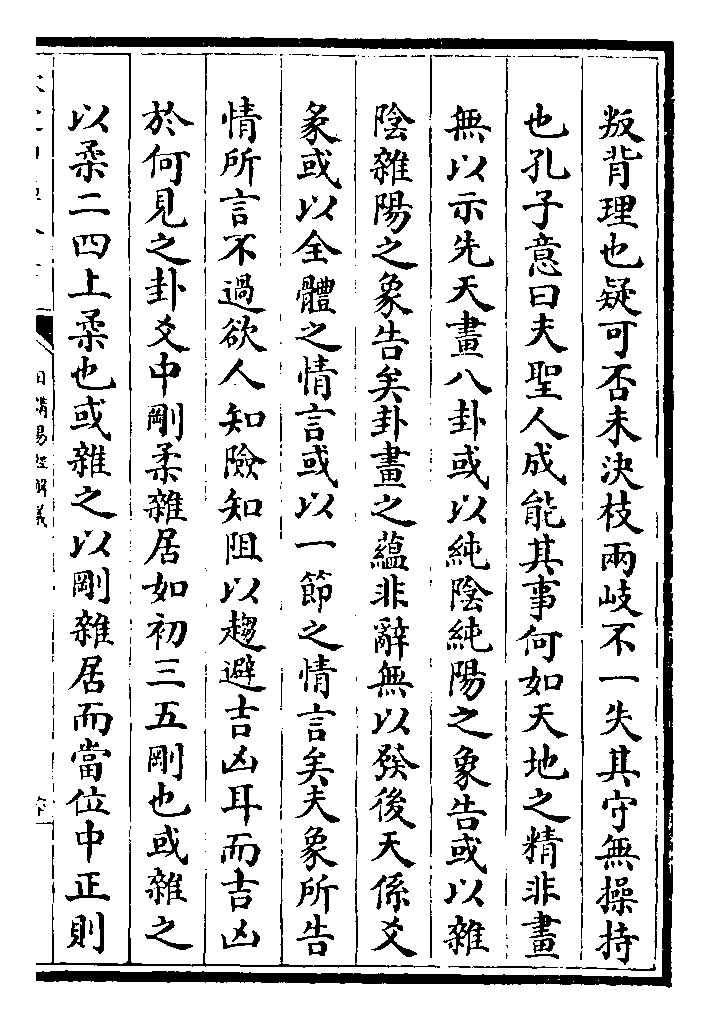 叛背理也疑可否未決枝兩岐不一失其守無操持
也孔子意曰夫聖人成能其事何如天地之精非畫
無以示先天畫八卦或以純陰純陽之象告或以雜
陰雜陽之象告矣卦畫之蘊非辭無以發後天係爻
彖或以全體之情言或以一節之情言矣夫象所告
情所言不過欲人知險知阻以趨避吉凶耳而吉凶
於何見之卦爻中剛柔雜居如初三五剛也或雜之
以柔二四上柔也或雜之以剛雜居而當位中正則
日講易經解義